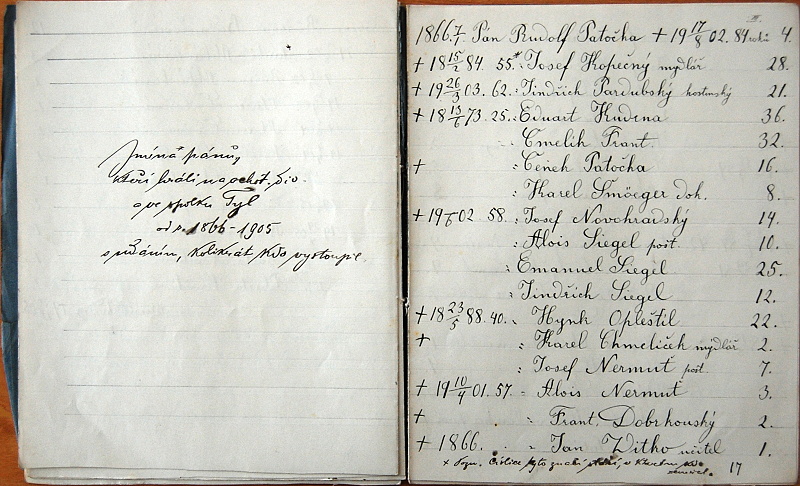 Jména pánů,
kteří hráli na ochot. div.
a ve spolku Tyl
od r. 1866-1905
s udáním, kolikrát kdo vystoupil.
II.
1866. 7/7 Pán Rudolf Patočka + 19 17/8 02. 84 roků 4.
+ 18 15/2 84. 55. " Josef Kopečný mydlář 28.
+ 19 26/3 03. 62. " Jindřich Pardubský hostinský 21.
+ 18 13/6 73. 25. " Eduart Kudrna 36.
" Cmelik Frant. 32.
+ " Čeněk Patočka 16.
" Karel dok. 8.
+ 19 02. 58. " Josef Novohradský 14.
" Alois Siegel pošt. 10.
" Emanuel Siegel 25.
" Jindřich Siegel 12.
+ 18 23/5 88. 40. " Hynk Opleštil 22.
+ " Karel Chmelíček mýdlář 2.
" Josef Nermut pošt. 7.
+ 19 10/4 01. 57. " Alois Nermut 3.
+ " Frant. Dobrkouský 2.
+ 1866. " Jan Witko učitel 1.
+ Pozn. Číslice tyto značí stáří, v kterém kdo
zemřel. 17